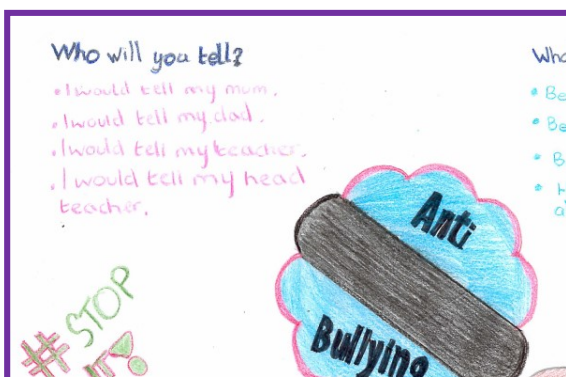 Who will you tell?
• I would tell my mum.
• I would tell my dad.
• I would tell my teacher.
• I would tell my head
teacher.
Anti
Bullying
#STOP
IT!
Be
Be
B